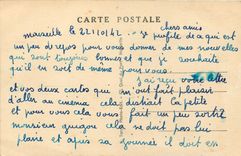 CARTE POSTALE
chers amis
marseille le 22/10/42. Je profite de a qui est
un peu de repos pour vous donner de mes nouvelles
qui sont toujours bonnes et que je souhaite
qu'il en soit de même pour vous.
j'ai reçu votre lettre
et vos deux cartes qui m'ont fait plaisir
d'aller au cinema cela distrait la petite
et pour cela vous fait un peu sortir
monsieur cela ne doit pas lui
plaire et après sa journée il doit est